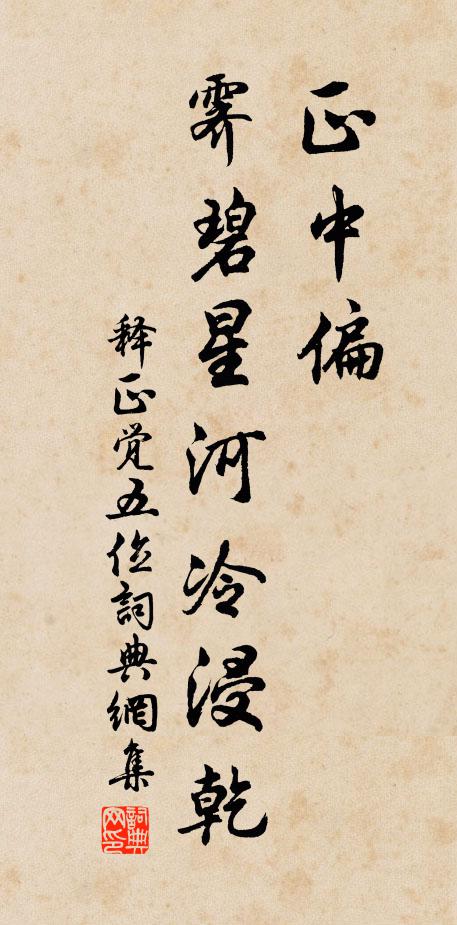 正中偏
霁碧星河冷浸乾
释正觉五位詞典網集
詞典网印